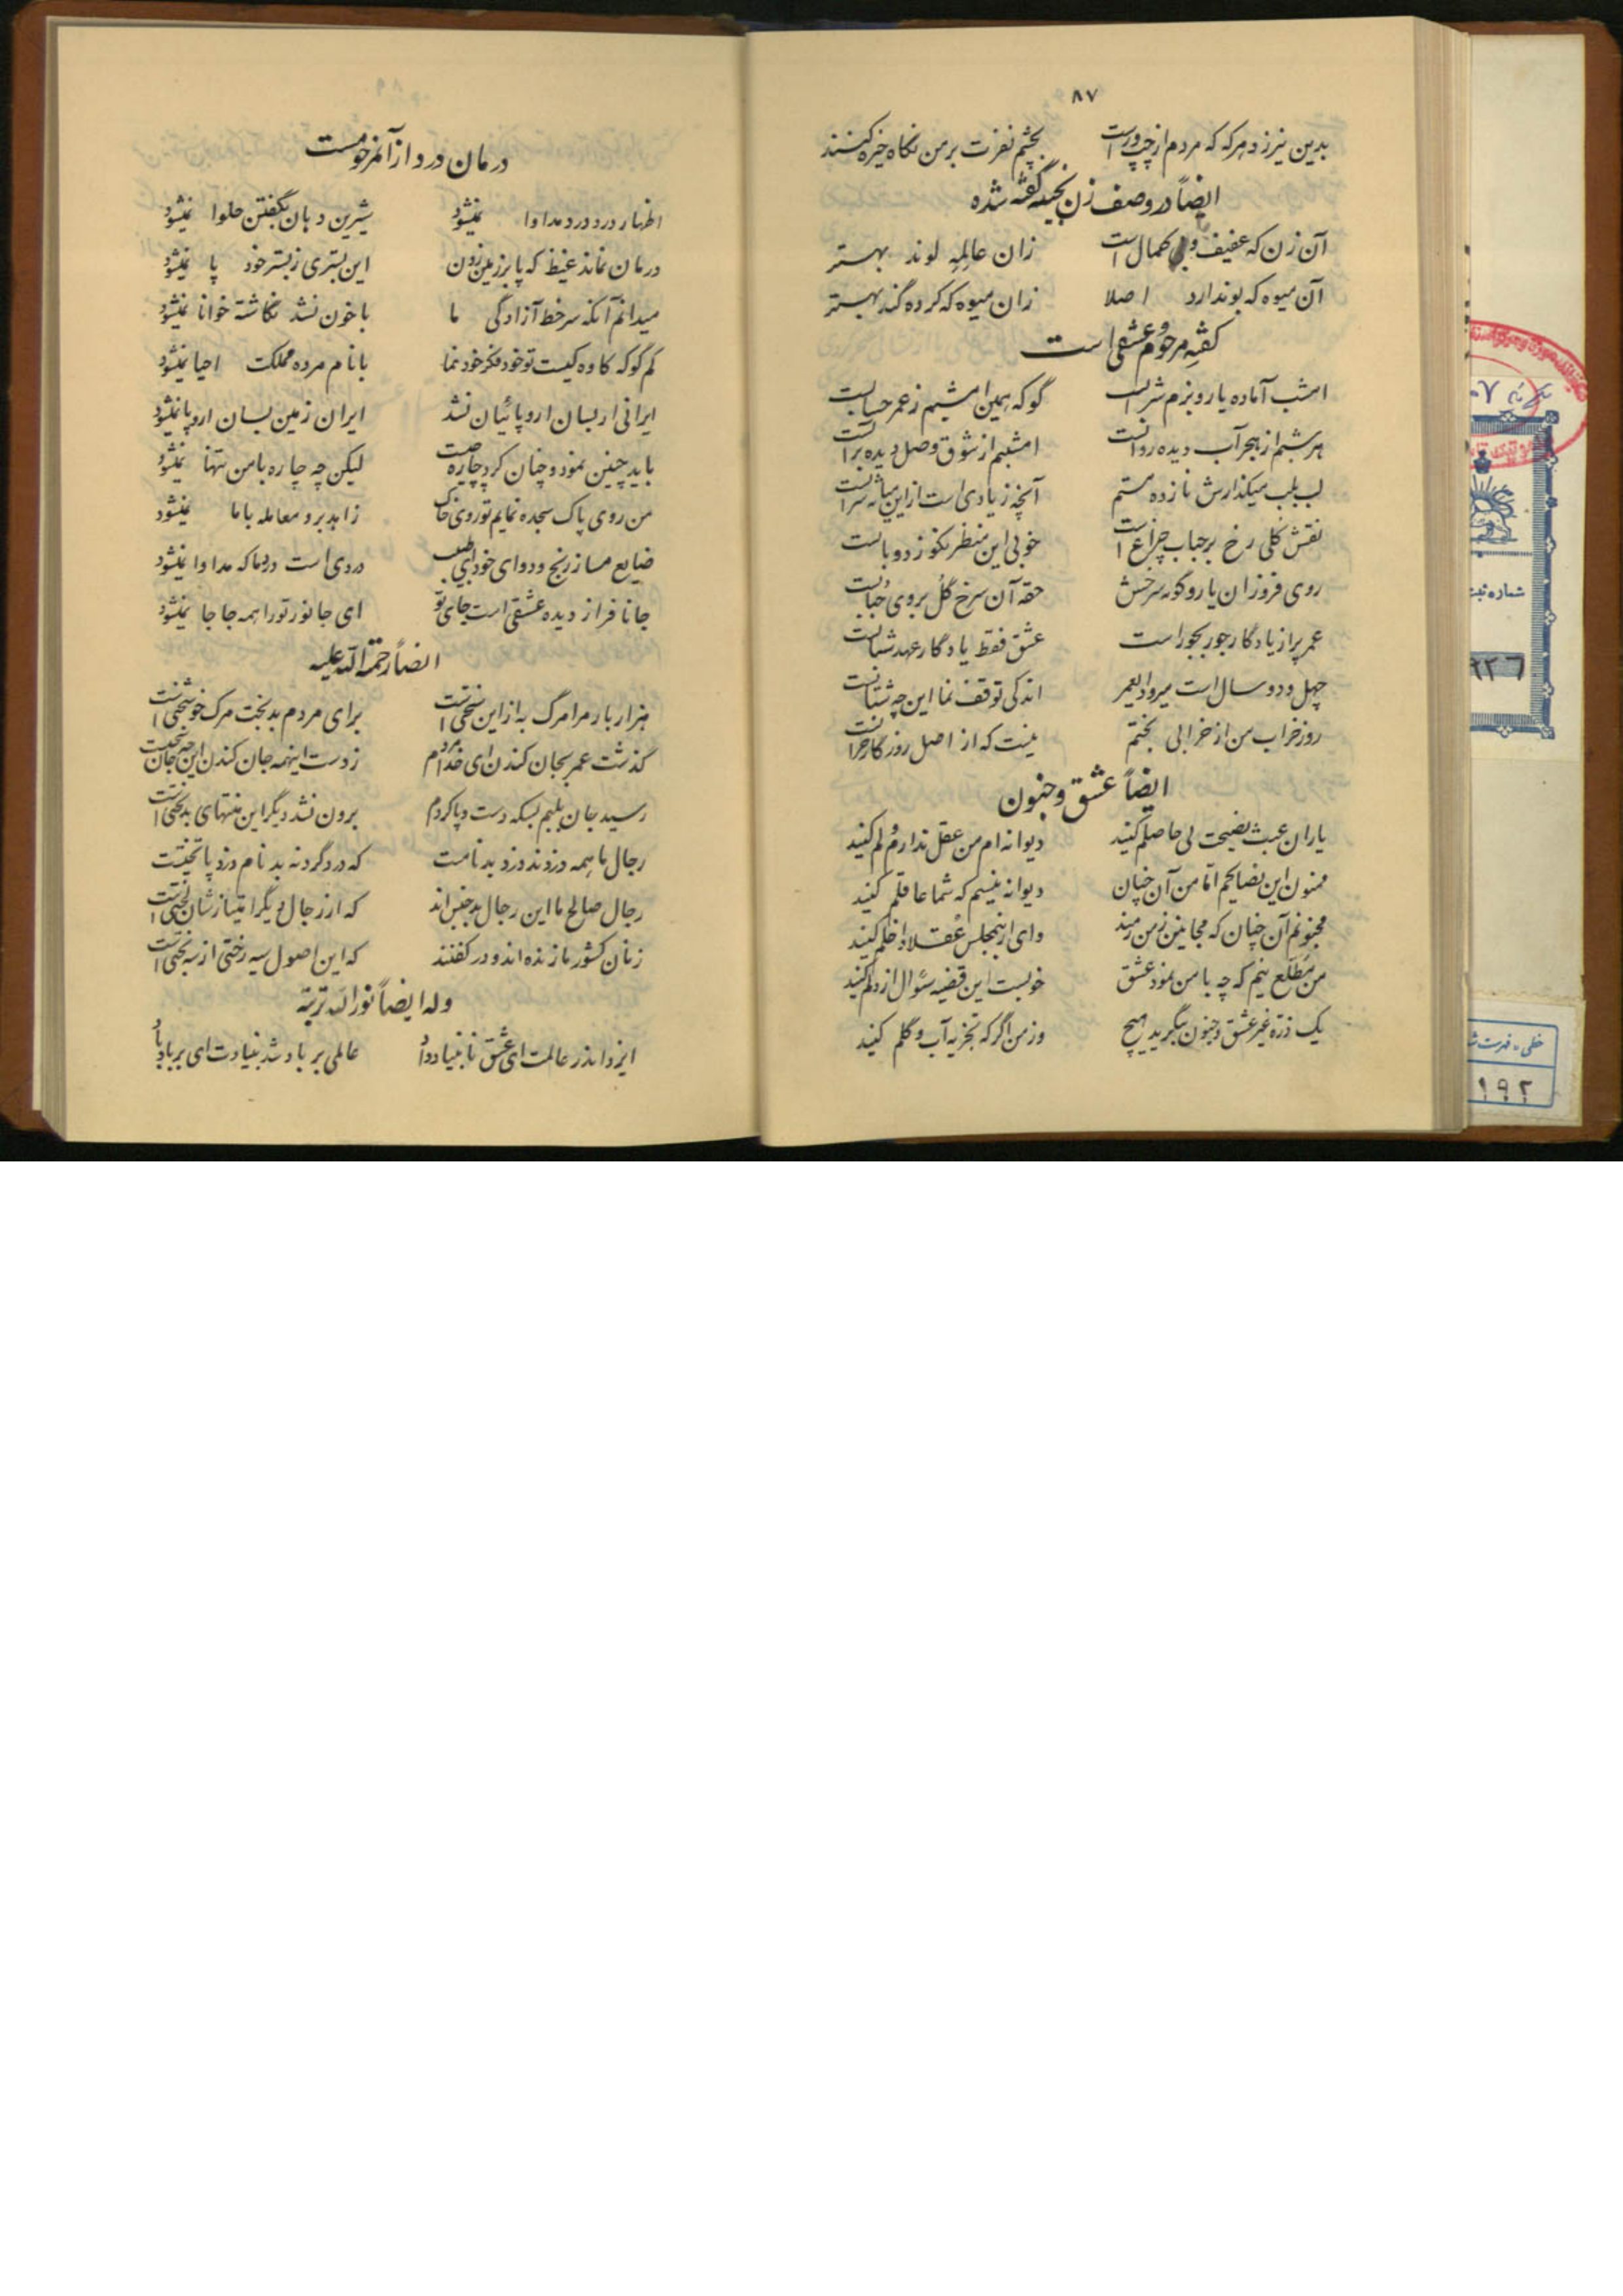 ۸۷
بدین نیرزد هرکه که مردم از چپ و راست بچشم نفرت بر من نگاه خیره کنند
ایضاً در وصف زن نجیبه گفته شده
آن زن که عفیف و بی کمال است زان عالمهٔ لوند بهتر
آن میوه که بو ندارد اصلا زان میوه که کرده گند بهتر
گفتهٔ مرحوم عشقی است
امشب آماده یار و بزم شراب است گو که همین امشبم ز عمر حساب است
هر شبم از هجر آب دیده روانست امشبم از شوق وصل دیده بر آبست
لب بلب میگذارش نازده مستم آنچه زیادی است از این میانه شرابست
نقش گلی رخ بر حباب چراغ است خوبی این منظر نکو ز دو بابست
روی فروزان یار و گونه سرخش حقه آن سرخ گل بروی حبابست
عمر پر از یادگار جور بجور است عشق فقط یادگار عهد شبابست
چهل و دو سال است میرود العمر اندکی توقف نما این چه شتابست
روز خراب من از خرابی بختم نیست که از اصل روزگار خرابست
ایضاً عشق و جنون
یاران عبث نصیحت بی حاصلم کنید دیوانه ام من عقل ندارم ولم کنید
ممنون این نصایحم اما من آن چنان دیوانه نیستم که شما عاقلم کنید
مجنونم آن چنان که مجانین ز من رمند وای ار بمجلس عقلا داخلم کنید
من مطلع نیم که چه با من نمود عشق خوبست این قضیه سئوال از دلم کنید
یک ذره غیر عشق و جنون ننگرید هیچ در من اگر که تجزیه آب و گلم کنید
درمان درد از آنمرحومست
اظهار درد درد مداوا نمیشود شیرین دهان بگفتن حلوا نمیشود
درمان نماند غیظ که پا بر زمین زدن این بستری ز بستر خود پا نمیشود
میدانم آنکه سرخط آزادگی ما با خون نشد نگاشته خوانا نمیشود
کم گو که کاوه کیست تو خود فکر خود نما با نام مرده مملکت احیا نمیشود
ایرانی ار بسان اروپائیان نشد ایران زمین بسان اروپا نمیشود
باید چنین نمود و چنان کرد چاره جست لیکن چه چاره با من تنها نمیشود
من روی پاک سجده نمایم تو روی خاک زاهد برو معامله با ما نمیشود
ضایع مساز رنج و دوای خود ای طبیب دردی است درد ما که مداوا نمیشود
جانا فراز دیده عشقی است جای تو ای جانور تو را همه جا جا نمیشود
ایضاً رحمة الله علیه
هزار بار مرا مرگ به از این سختی است برای مردم بدبخت مرگ خوشبختی است
گذشت عمر بجان کندن ای خدا مردم ز دست اینهمه جان کندن این چه جان سختیست
رسید جان بلبم بسکه دست و پا کردم برون نشد دیگر این منتهای بدبختی است
رجال ما همه دزدند و دزد بدنامست که دزد گردنه بدنام دزد پاتختیست
رجال صالح ما این رجال بدجنس اند که از رجال دیگر امتیازشان لختی است
زنان کشور ما زنده اند و در کفنند که این اصول سیه رختی از سیه بختی است
وله ایضاً نور الله تربته
ایزد اندر عالمت ای عشق تا بنیاد داد عالمی بر باد شد بنیادت ای بر باد باد